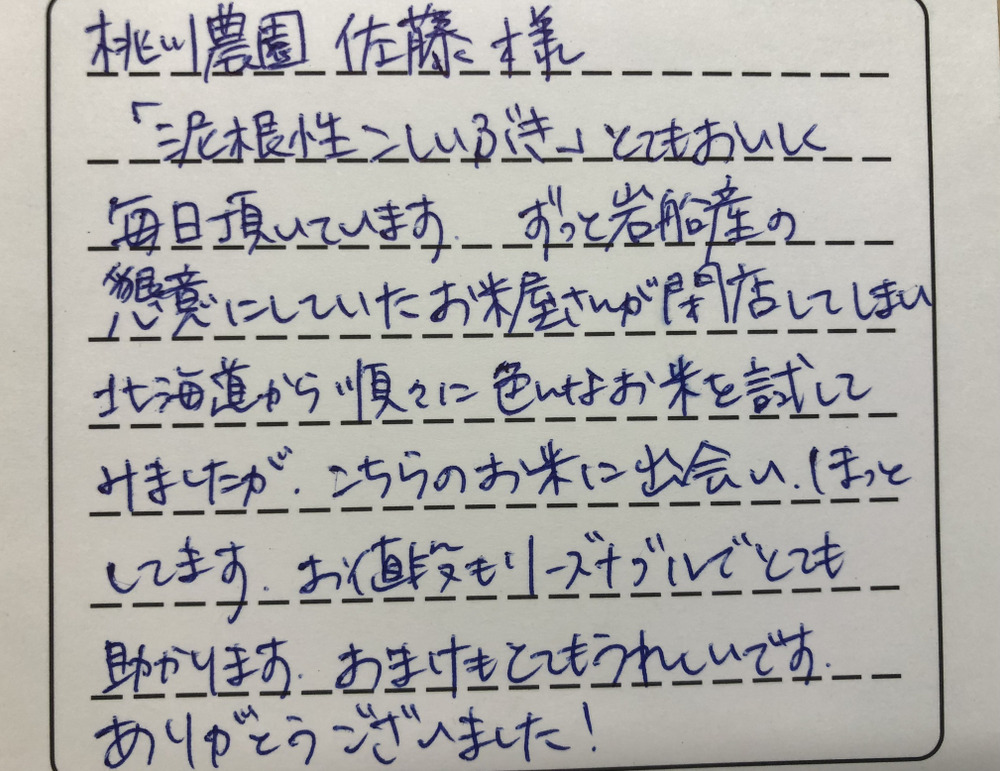 桃川農園 佐藤様
「泥根性こしいぶき」とてもおいしく
毎日頂いています。 ずっと岩船産の
懇意にしていたお米屋さんが閉店してしまい
北海道から順々に色んなお米を試して
みましたが、こちらのお米に出会い、ほっと
してます。お値段もリーズナブルでとても
助かります。おまけもとてもうれしいです。
ありがとうございました!